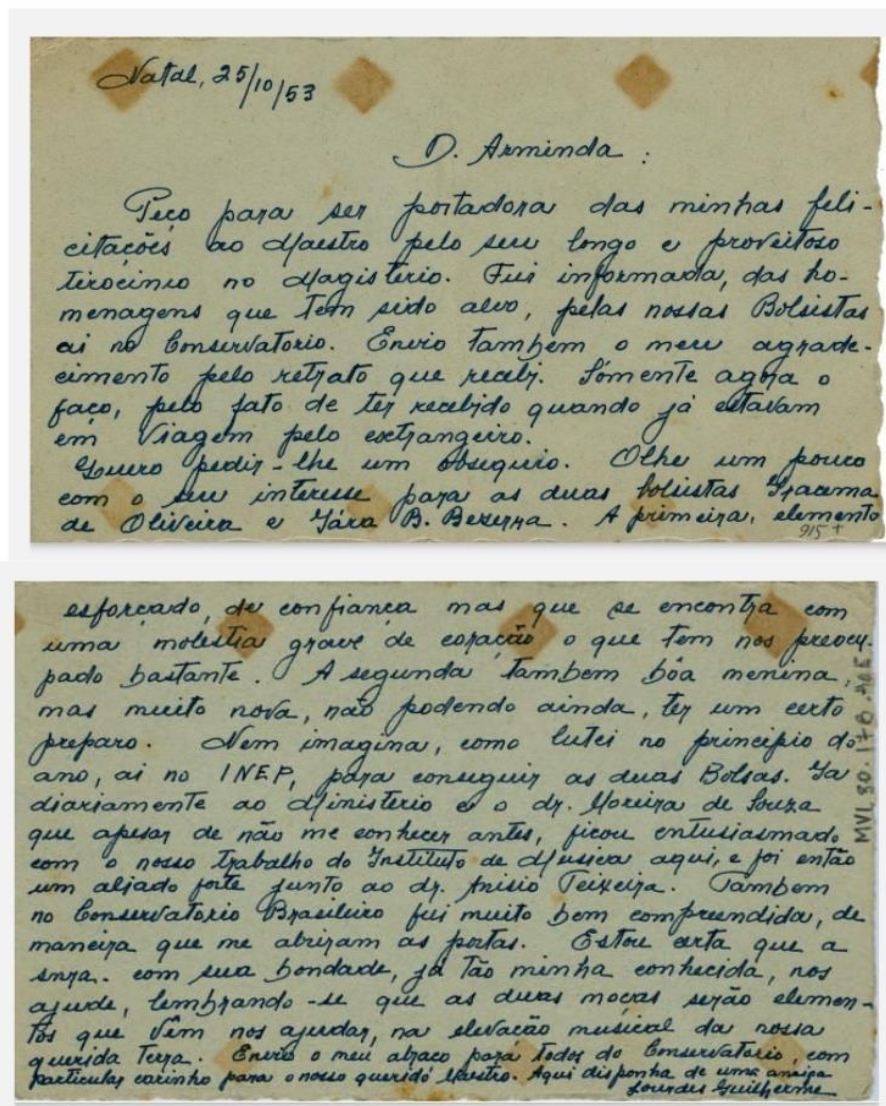 Natal, 25/10/53
D. Arminda :
Peço para ser portadora das minhas feli-
citações ao Maestro pelo seu longo e proveitoso
tirocinio no Magistério. Fui informada, das ho-
menagens que tem sido alvo, pelas nossas Bolsistas
ai no Conservatorio. Envio também o meu agrade-
cimento pelo retrato que recebi. Sómente agora o
faço, pelo fato de ter recebido quando já estavam
em Viagem pelo extrangeiro.
Quero pedir-lhe um obsequio. Olhe um pouco
com o seu interesse para as duas bolsistas Iracema
de Oliveira e Yára B. Bezerra. A primeira, elemento
915 +
esforçado, de confiança mas que se encontra com
uma molestia grave de coração o que tem nos preocu-
pado bastante. A segunda tambem bôa menina,
mas muito nova, não podendo ainda, ter um certo
preparo. Nem imagina, como lutei no principio do
ano, ai no INEP, para conseguir as duas Bolsas. Ia
diariamente ao Ministerio e o dr. Moreira de Souza
que apesar de não me conhecer antes, ficou entusiasmado
com o nosso trabalho do Instituto de Musica aqui, e foi então
um aliado forte junto ao dr. Anisio Teixeira. Tambem
no Conservatorio Brasileiro fui muito bem compreendida, de
maneira que me abriram as portas. Estou certa que a
snra. com sua bondade, já tão minha conhecida, nos
ajude, lembrando-se que as duas moças serão elemen-
tos que vêm nos ajudar, na elevação musical da nossa
querida Terra. Envio o meu abraço para todos do Conservatorio, com
particular carinho para o nosso querido Maestro. Aqui disponha de uma amiga
Lourdes Guilherme